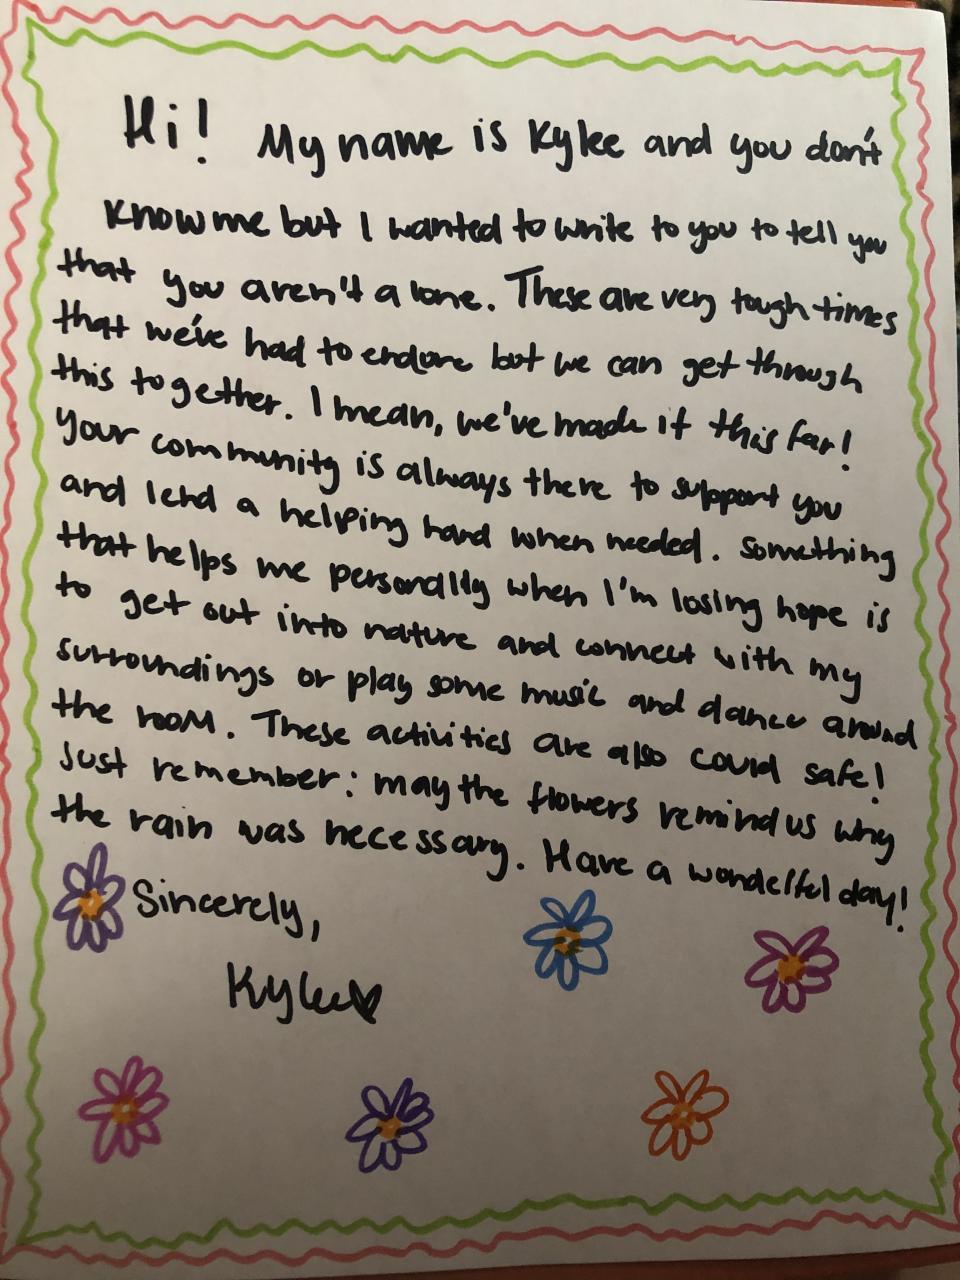 Hi! My name is Kylee and you don't
know me but I wanted to write to you to tell you
that you aren't alone. These are very tough times
that we've had to endure but we can get through
this together. I mean, we've made it this far!
Your community is always there to support you
and lend a helping hand when needed. Something
that helps me personally when I'm losing hope is
to get out into nature and connect with my
surroundings or play some music and dance around
the room. These activities are also covid safe!
Just remember: may the flowers remind us why
the rain was necessary. Have a wonderful day!
Sincerely,
Kylee